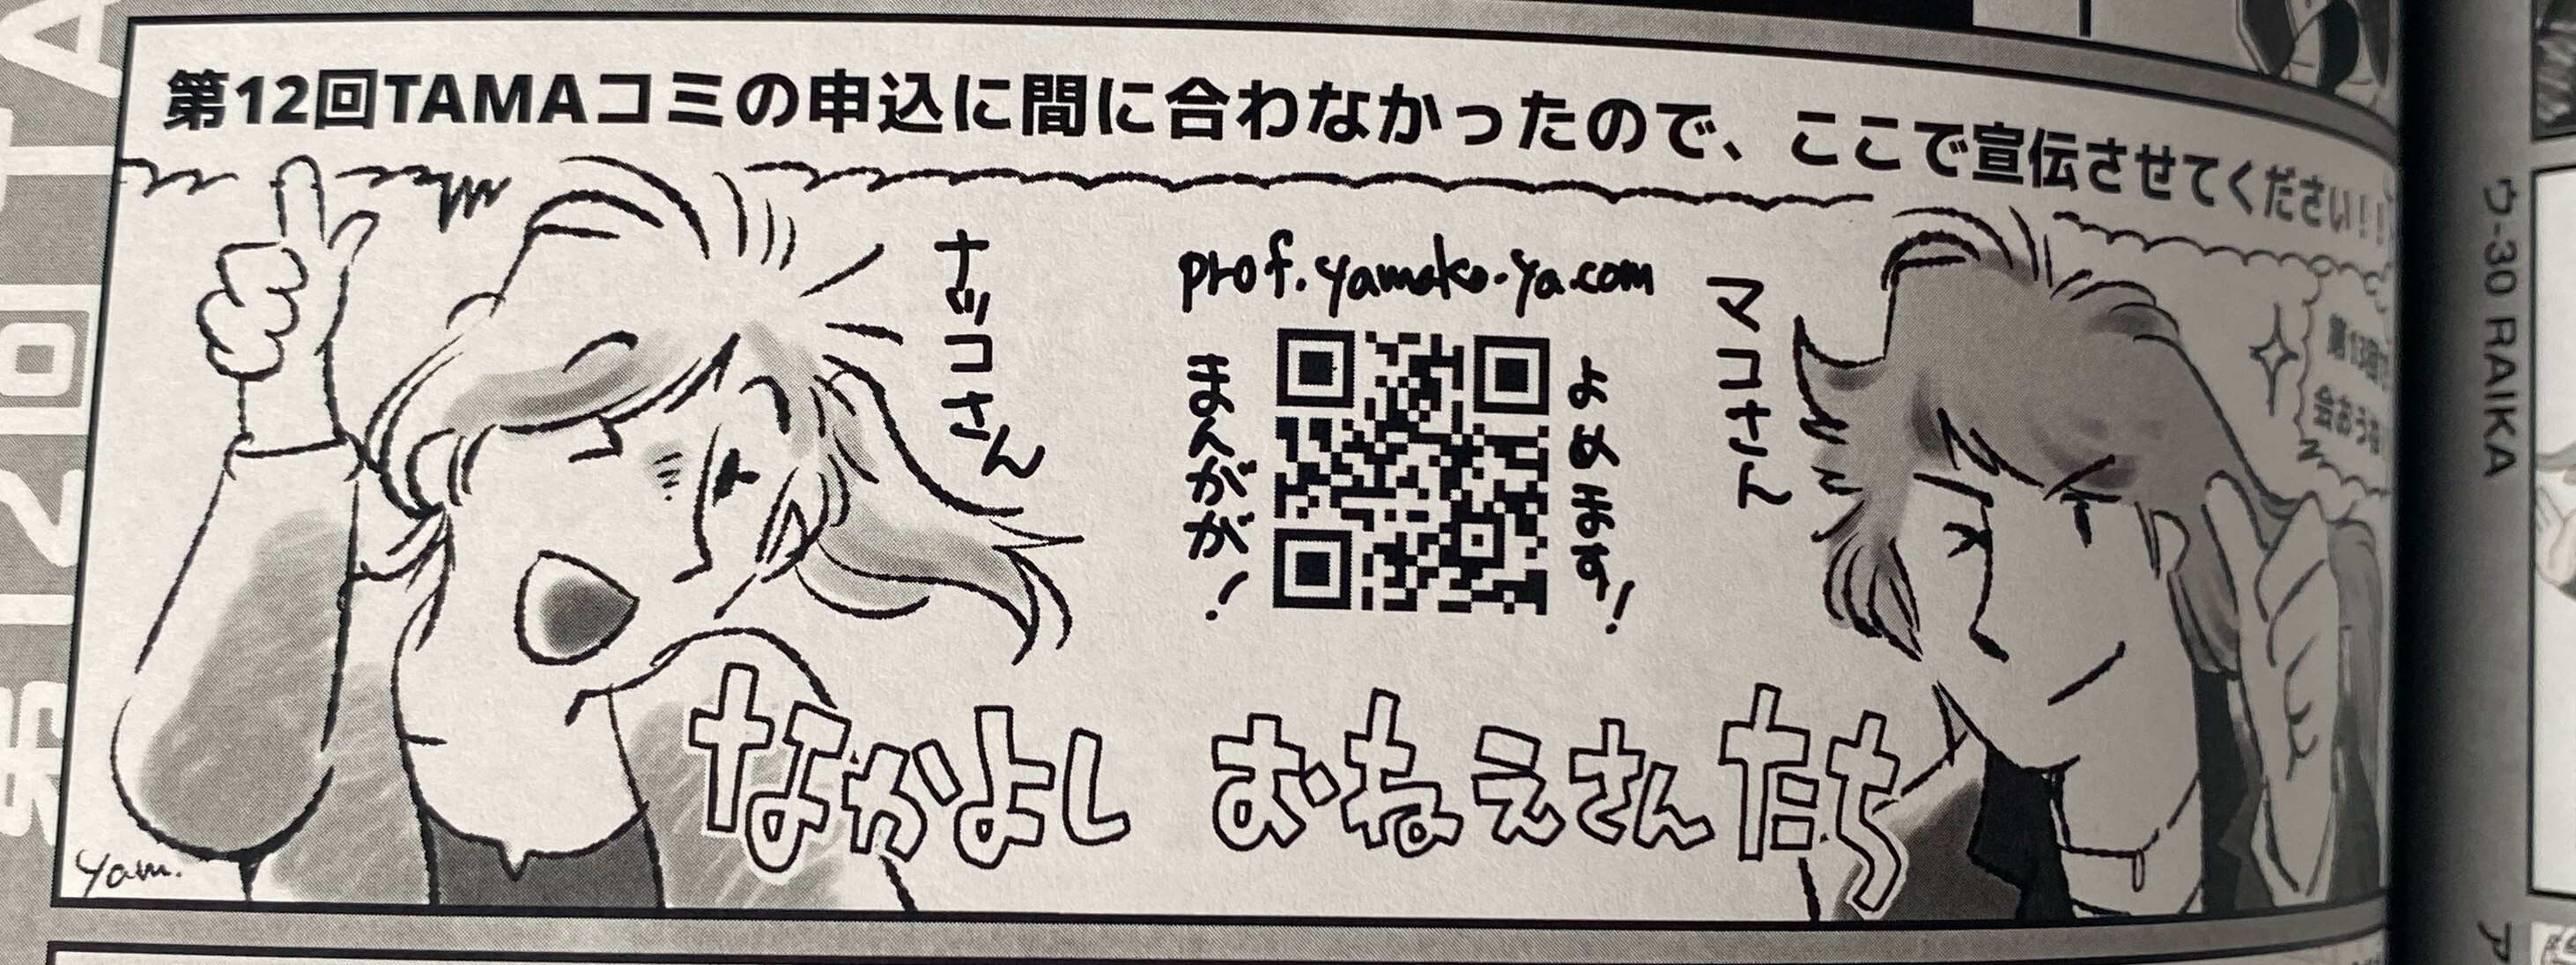 第12回TAMAコミの申込に間に合わなかったので、ここで宣伝させてください!!
ナッコさん
prof.yamako-ya.com
マコさん
まんがが!
よめます!
第13回で
会おうね
なかよし おねえさんたち
yam.
ウ-30 RAIKA
ア
第12回TA